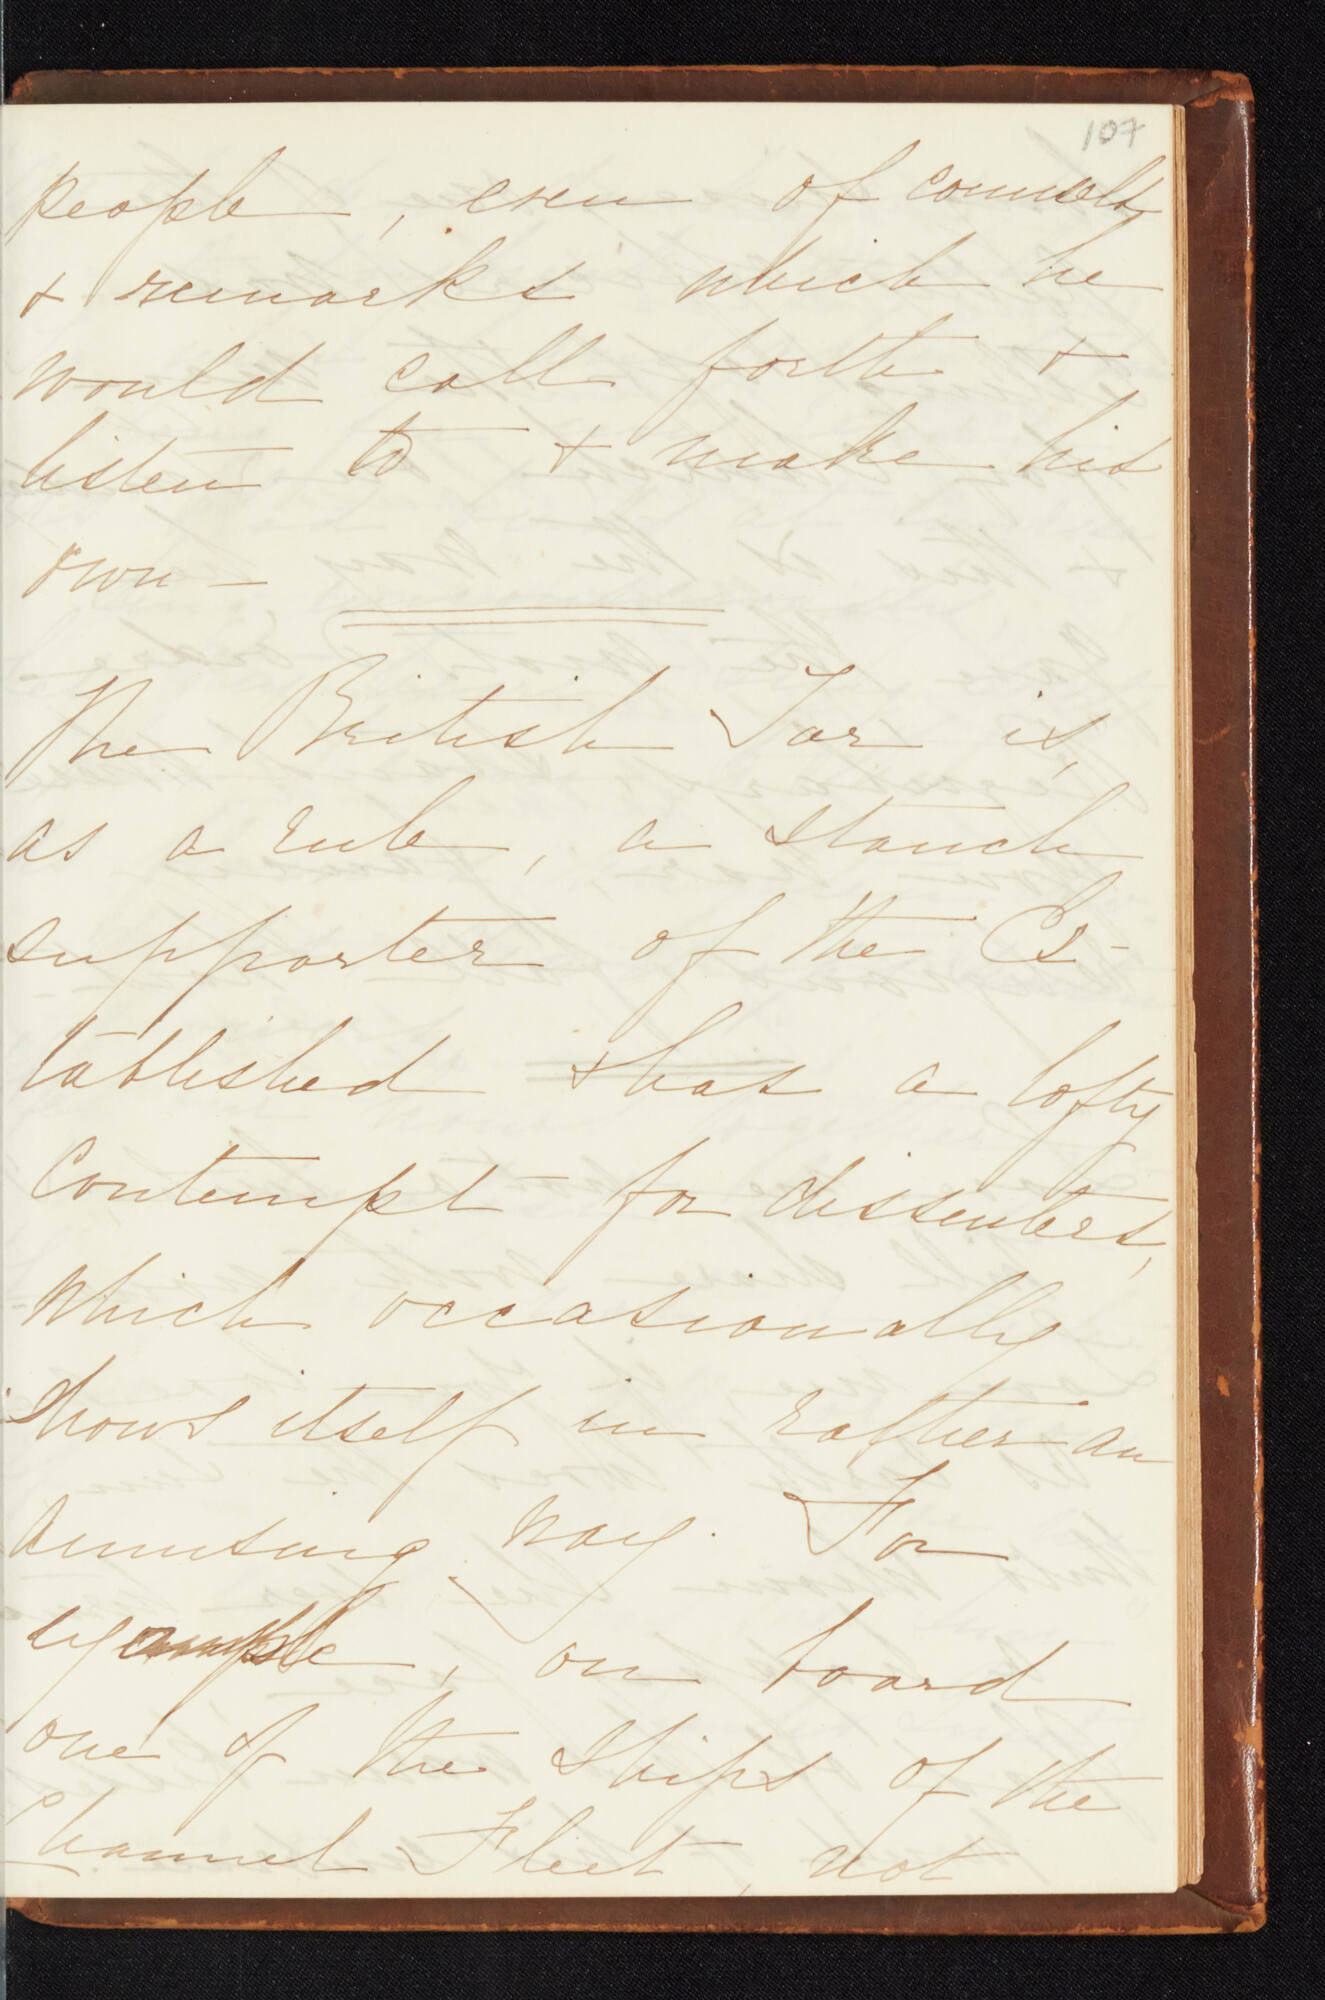 107
people, even of counsels
& remarks which he
would call forth &
listen to & make his
own —
The British Tar is,
as a rule, a stanch
supporter of the Es-
tablished & has a lofty
Contempt for dissenters,
which occasionally
shows itself in rather an
amusing way. For
example, on board
one of the ships of the
Channel Fleet, not